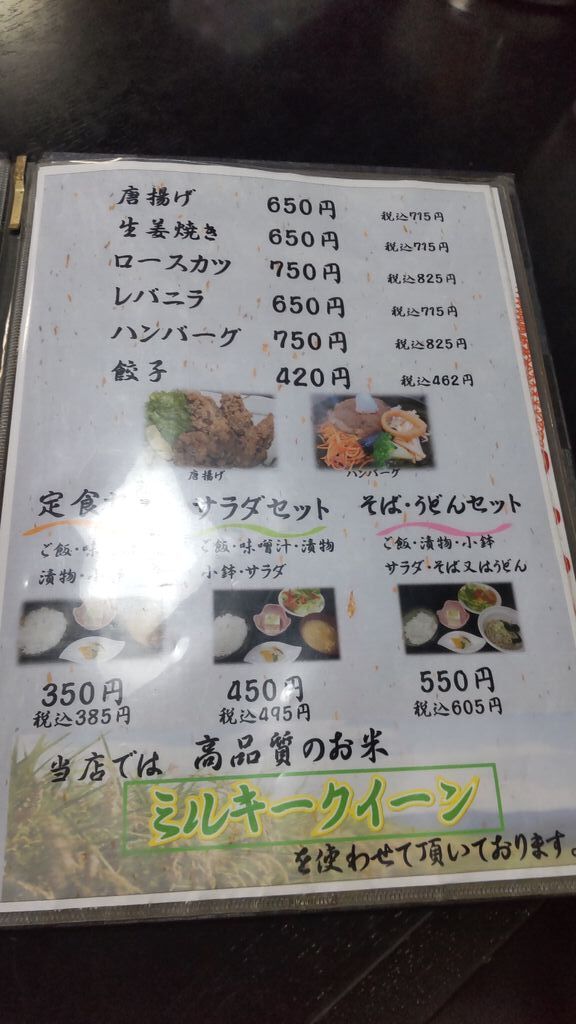 唐揚げ 650円 税込715円
生姜焼き 650円 税込715円
ロースカツ 750円 税込825円
レバニラ 650円 税込715円
ハンバーグ 750円 税込825円
餃子 420円 税込462円
唐揚げ ハンバーグ
定食 サラダセット そば・うどんセット
ご飯・味 ご飯・味噌汁・漬物 ご飯・漬物・小鉢
漬物・ 小鉢・サラダ サラダ・そば又はうどん
350円 450円 550円
税込385円 税込495円 税込605円
当店では 高品質のお米
ミルキークイーン
を使わせて頂いております。